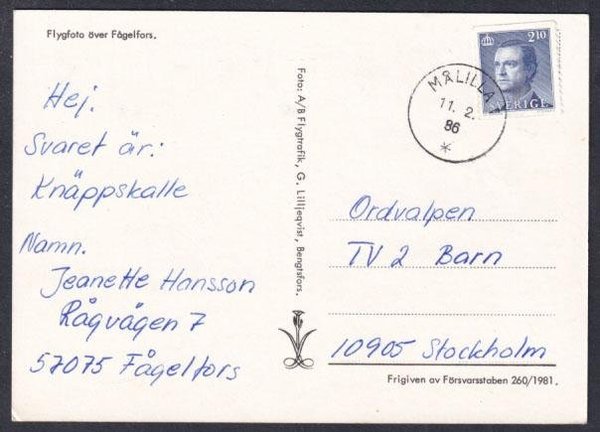 Flygfoto över Fågelfors.
Hej.
Svaret är:
Knäppskalle
Namn.
Jeanette Hansson
Rågvägen 7
57075 Fågelfors
Foto: A/B Flygtrafik, G. Lilljeqvist, Bengtsfors.
2.10
SVERIGE
MÅLILLA
11. 2.
86
Ordvalpen
TV 2 Barn
10905 Stockholm
Frigiven av Försvarsstaben 260/1981.